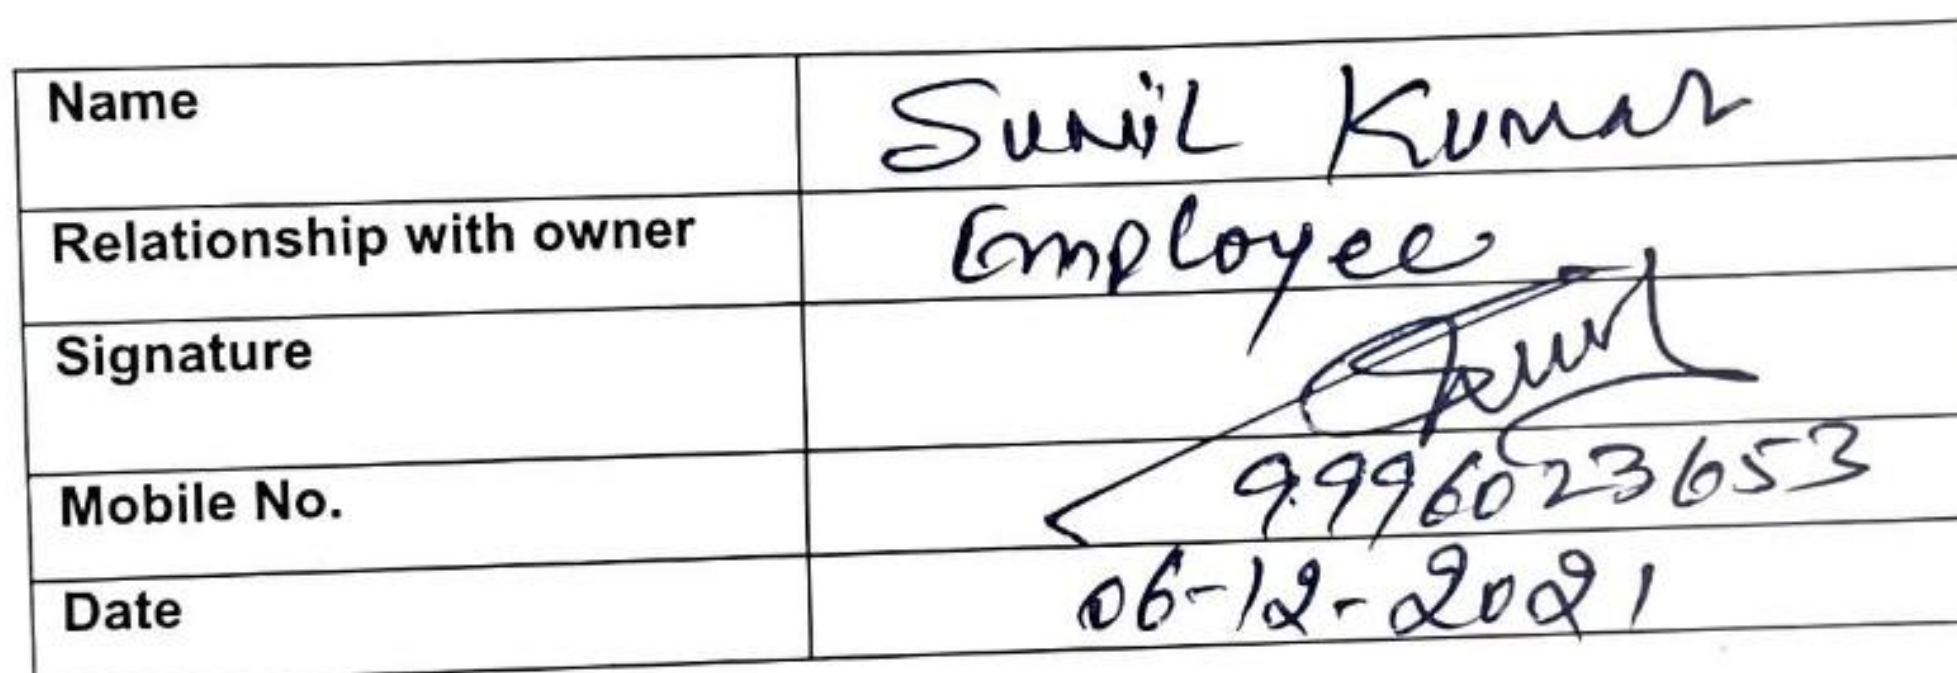 Name Sunil Kumar
Relationship with owner Employee
Signature Sunil
Mobile No. 9996023653
Date 06-12-2021